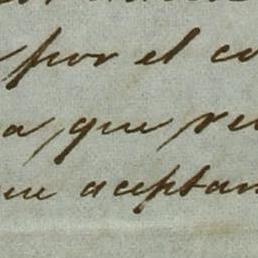 por el co
a, que re
ue aceptan